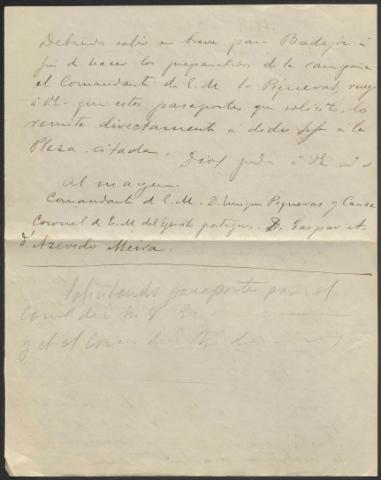 Debiendo salir en breve para Badajoz á
fin de hacer los preparativos de la campaña
el Comandante de E. M. Sr Piqueras, ruego
á V.E. que estos pasaportes que solicito los
remita directamente á dicho Jefe á la
Plaza citada. Dios gude á V.E. m. a
Comandante de E. M. D. Enrique Piqueras y Causa
Coronel de E. M. del Ejército portugues. D. Gaspar A.
d'Azevedo Meira.
Solicitando pasaportes para el
Coronel de E. M.
y el Coman de E. M. de